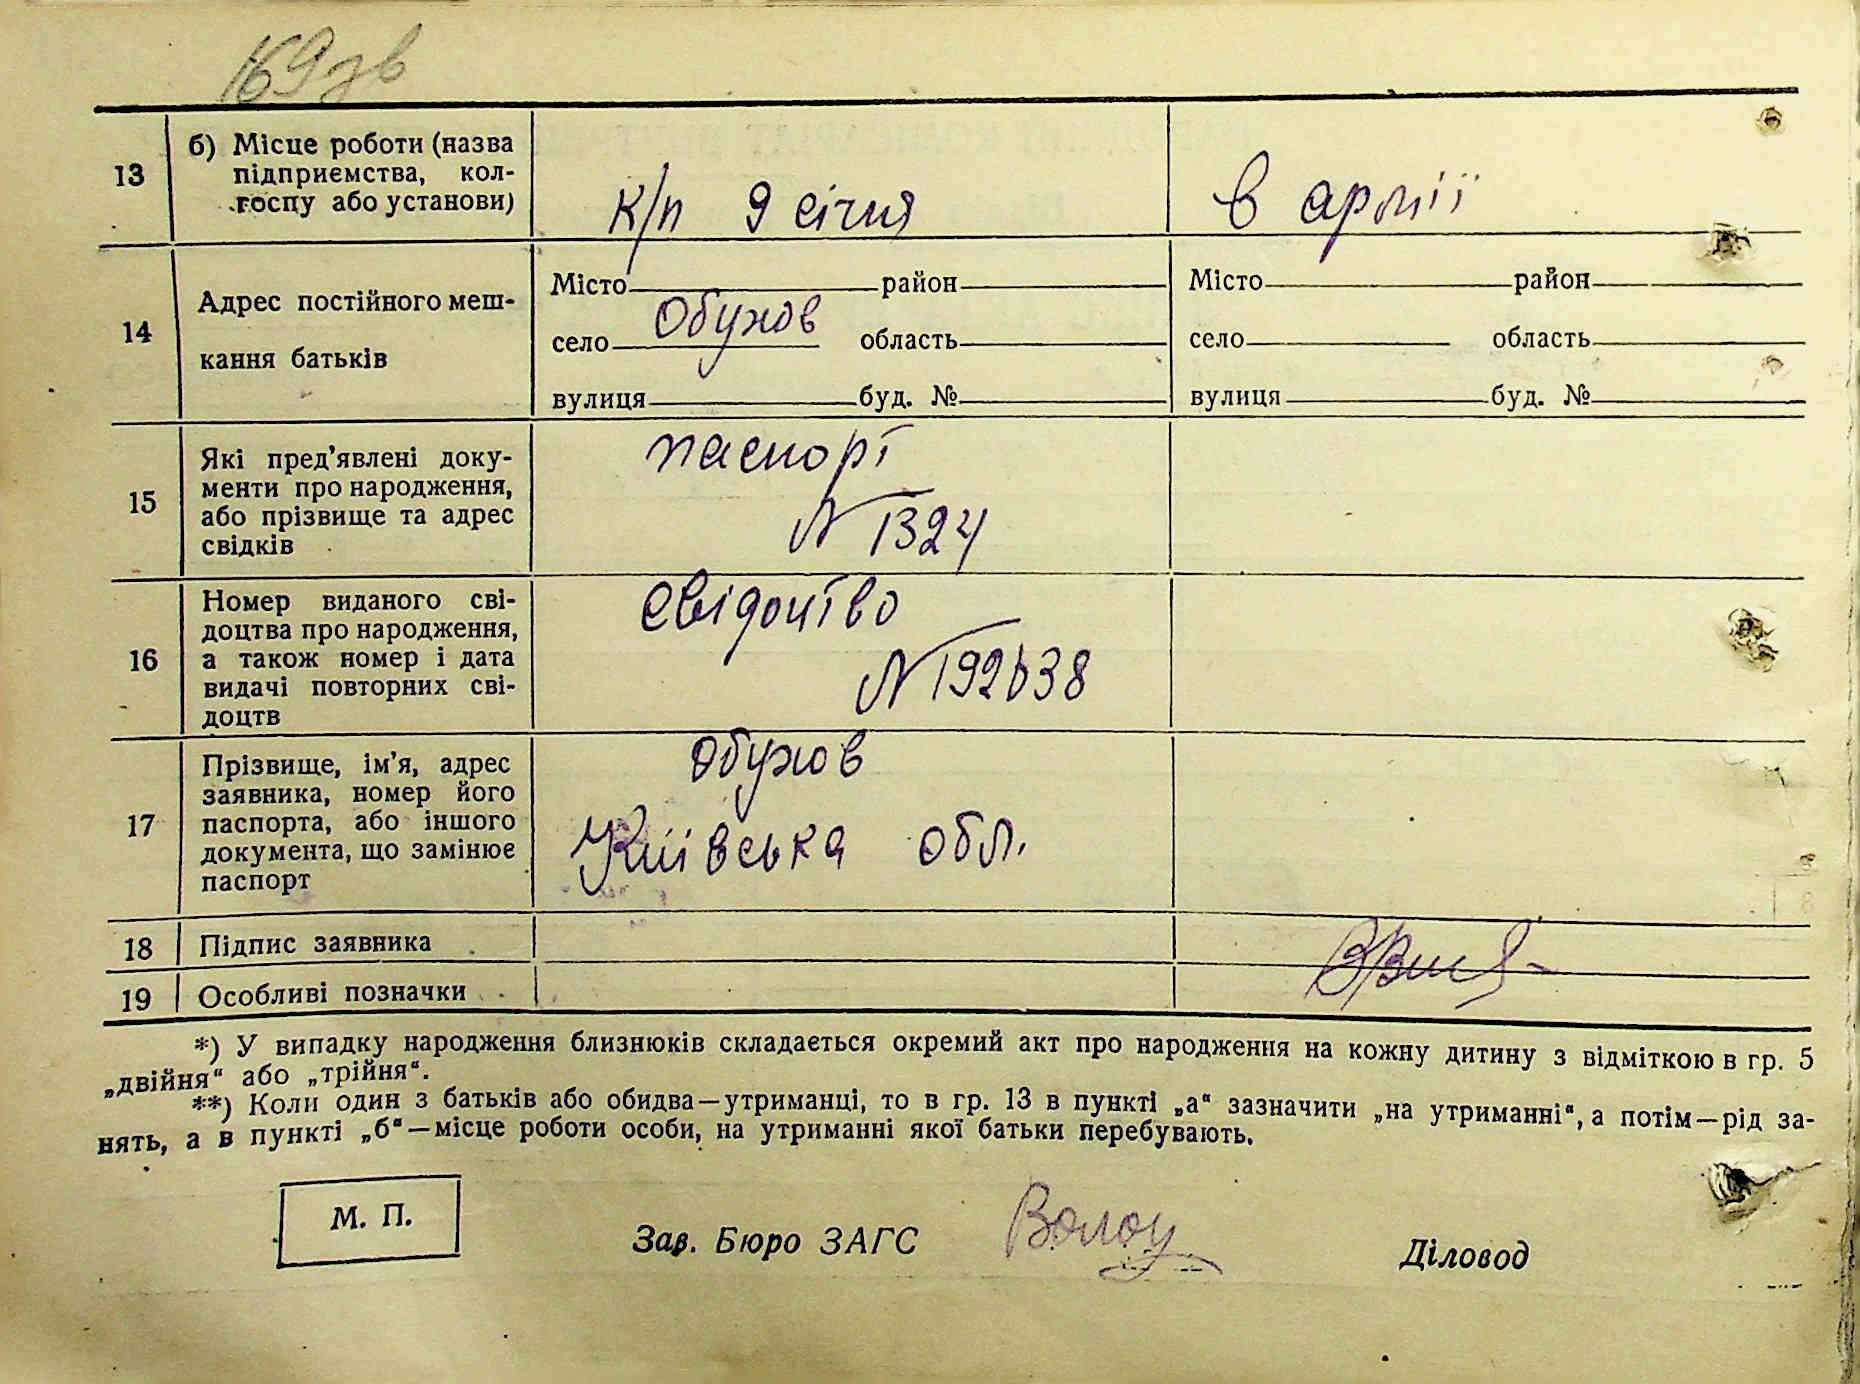 169 зв
13
б) Місце роботи (назва
підприємства, кол-
госпу або установи)
к/п 9 січня
в армії
14
Адрес постійного меш-
кання батьків
Місто район
село Обухов область
вулиця буд. №
Місто район
село область
вулиця буд. №
15
Які пред’явлені доку-
менти про народження,
або прізвище та адрес
свідків
паспорт
N 1324
16
Номер виданого сві-
доцтва про народження,
а також номер і дата
видачі повторних сві-
доцтв
свідоцтво
N 192638
17
Прізвище, ім’я, адрес
заявника, номер його
паспорта, або іншого
документа, що замінює
паспорт
Обухов
Київська обл.
18
Підпис заявника
19
Особливі позначки
*) У випадку народження близнюків складається окремий акт про народження на кожну дитину з відміткою в гр. 5
„двійня“ або „трійня“.
**) Коли один з батьків або обидва—утриманці, то в гр. 13 в пункті „а“ зазначити „на утриманні“, а потім—рід за-
нять, а в пункті „б“—місце роботи особи, на утриманні якої батьки перебувають.
М. П.
Зав. Бюро ЗАГС
Діловод